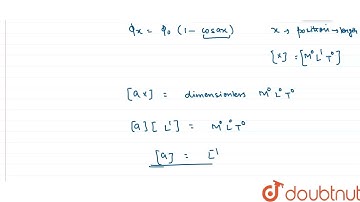 ϕx = ϕ0 (1 - cosax) x → position → length
[x] = [M⁰ L¹ T⁰]
[ax] = dimensionless M⁰ L⁰ T⁰
[a][L¹] = M⁰ L⁰ T⁰
[a] = L⁻¹
doubtnut